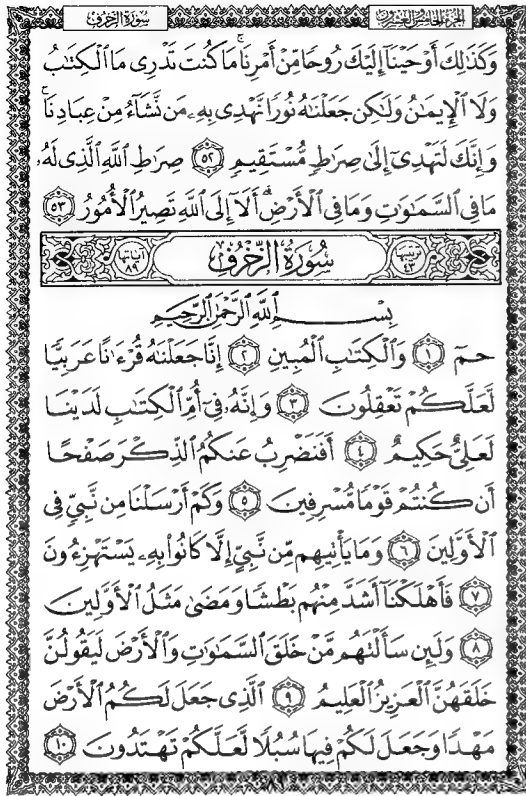 الجزء الخامس والعشرون
سورة الزخرف
وَكَذَٰلِكَ أَوْحَيْنَآ إِلَيْكَ رُوحًا مِّنْ أَمْرِنَا ۚ مَا كُنتَ تَدْرِى مَا ٱلْكِتَٰبُ
وَلَا ٱلْإِيمَٰنُ وَلَٰكِن جَعَلْنَٰهُ نُورًا نَّهْدِى بِهِۦ مَن نَّشَآءُ مِنْ عِبَادِنَا ۚ
وَإِنَّكَ لَتَهْدِىٓ إِلَىٰ صِرَٰطٍ مُّسْتَقِيمٍ ٥٢ صِرَٰطِ ٱللَّهِ ٱلَّذِى لَهُۥ
مَا فِى ٱلسَّمَٰوَٰتِ وَمَا فِى ٱلْأَرْضِ ۗ أَلَآ إِلَى ٱللَّهِ تَصِيرُ ٱلْأُمُورُ ٥٣
ترتيبها ٤٣ سُورَةُ الزُّخْرُفِ آياتها ٨٩
بِسْمِ ٱللَّهِ ٱلرَّحْمَٰنِ ٱلرَّحِيمِ
حمٓ ١ وَٱلْكِتَٰبِ ٱلْمُبِينِ ٢ إِنَّا جَعَلْنَٰهُ قُرْءَٰنًا عَرَبِيًّا
لَّعَلَّكُمْ تَعْقِلُونَ ٣ وَإِنَّهُۥ فِىٓ أُمِّ ٱلْكِتَٰبِ لَدَيْنَا
لَعَلِىٌّ حَكِيمٌ ٤ أَفَنَضْرِبُ عَنكُمُ ٱلذِّكْرَ صَفْحًا
أَن كُنتُمْ قَوْمًا مُّسْرِفِينَ ٥ وَكَمْ أَرْسَلْنَا مِن نَّبِىٍّ فِى
ٱلْأَوَّلِينَ ٦ وَمَا يَأْتِيهِم مِّن نَّبِىٍّ إِلَّا كَانُوا۟ بِهِۦ يَسْتَهْزِءُونَ
٧ فَأَهْلَكْنَآ أَشَدَّ مِنْهُم بَطْشًا وَمَضَىٰ مَثَلُ ٱلْأَوَّلِينَ
٨ وَلَئِن سَأَلْتَهُم مَّنْ خَلَقَ ٱلسَّمَٰوَٰتِ وَٱلْأَرْضَ لَيَقُولُنَّ
خَلَقَهُنَّ ٱلْعَزِيزُ ٱلْعَلِيمُ ٩ ٱلَّذِى جَعَلَ لَكُمُ ٱلْأَرْضَ
مَهْدًا وَجَعَلَ لَكُمْ فِيهَا سُبُلًا لَّعَلَّكُمْ تَهْتَدُونَ ١٠